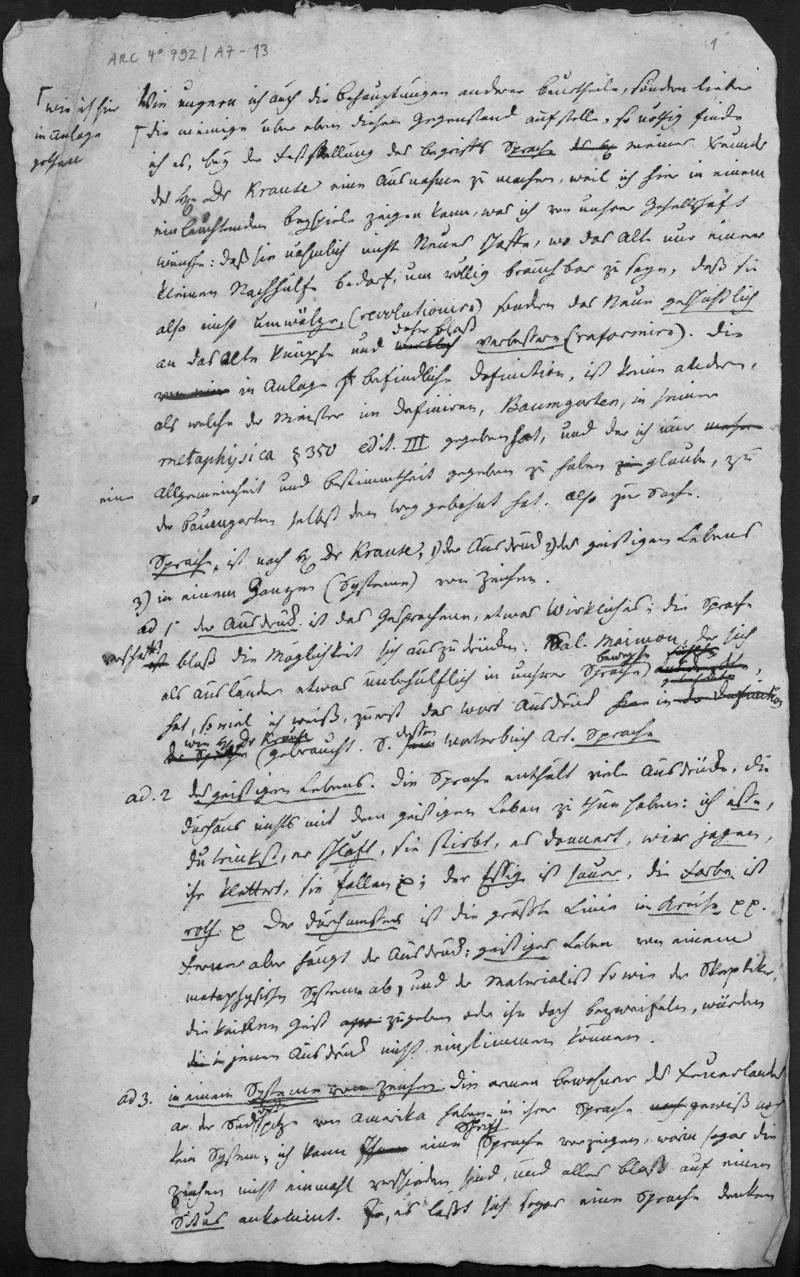 ARC 4° 792 / A7-13
1
Wie ungern ich auch die behauptungen anderer beurtheile, sondern lieber
⌈wie ich hier
in anlage
gethan
⌈die meinige über eben diesen Gegenstand aufstelle, so nöthig finde
ich es, bey der Feststellung des begriffs Sprache meines Freundes
des Hr Dr Krause eine Ausnahme zu machen, weil ich hier in einem
einleuchtenden beyspiele zeigen kann, was ich von unsrer Gesellschaft
wünsche: daß sie nehmlich nicht Neues schaffe, wo das Alte nur einer
kleinen Nachhülfe bedarf, um völlig brauchbar zu seyn, daß sie
also nicht umwälze, (revolutionire) sondern das Neue geschichtlich
an das Alte knüpfe und daher bloß verbessere (reformire). Die
in Anlage befindliche Definition, ist keine andere,
als welche der Meister im Definiren, Baumgarten, in seiner
metaphysica § 350 edit. III gegeben hat, und der ich nur
eine Allgemeinheit und bestimmtheit gegeben zu haben glaube, zu
der Baumgarten selbst den Weg gebahnt hat. Also zur Sache.
Sprache, ist nach Hr Dr Krause, 1) der Ausdruck 2) des geistigen Lebens
3) in einem Ganzen (Systeme) von Zeichen.
ad 1 der Ausdruck ist das Gesprochene, etwas Wirkliches; die Sprache
verschafft bloß die Möglichkeit sich auszudrücken. Sal. Maimon, der sich
als Ausländer etwas unbehülflich in unsrer Sprache bewegte,
hat, so viel ich weiß, zuerst das Wort Ausdruck
wie Hr Dr Krause gebraucht. S. dessen Wörterbuch Art. Sprache
ad. 2 des geistigen Lebens. Die Sprache enthält viele Ausdrücke, die
durchaus nichts mit dem geistigen Leben zu thun haben: ich esse,
du trinkst, er schläft, sie stirbt, es donnert, wir jagen,
ihr klettert, sie fallen; der Essig ist sauer, die Farbe ist
roth. Der Durchmesser ist die größte Linie im Kreise
Ferner aber hängt der Ausdruck: geistiges Leben von einem
metaphysischen Systeme ab, und der Materialist so wie der Skeptiker,
die keinen Geist zugeben oder ihn doch bezweifeln, würden
in jenen Ausdruck nicht einstimmen können.
ad 3. in einem Systeme von Zeichen die armen bewohner des Feuerlandes
an der Südspitze von Amerika haben in ihrer Sprache gewiß noch
kein System; ich kann eine Sprache vorzeigen, worin sogar die
Zeichen nicht einmahl verschieden sind, und alles bloß auf einen
Situs ankommt. Ja, es läßt sich sogar eine Sprache denken